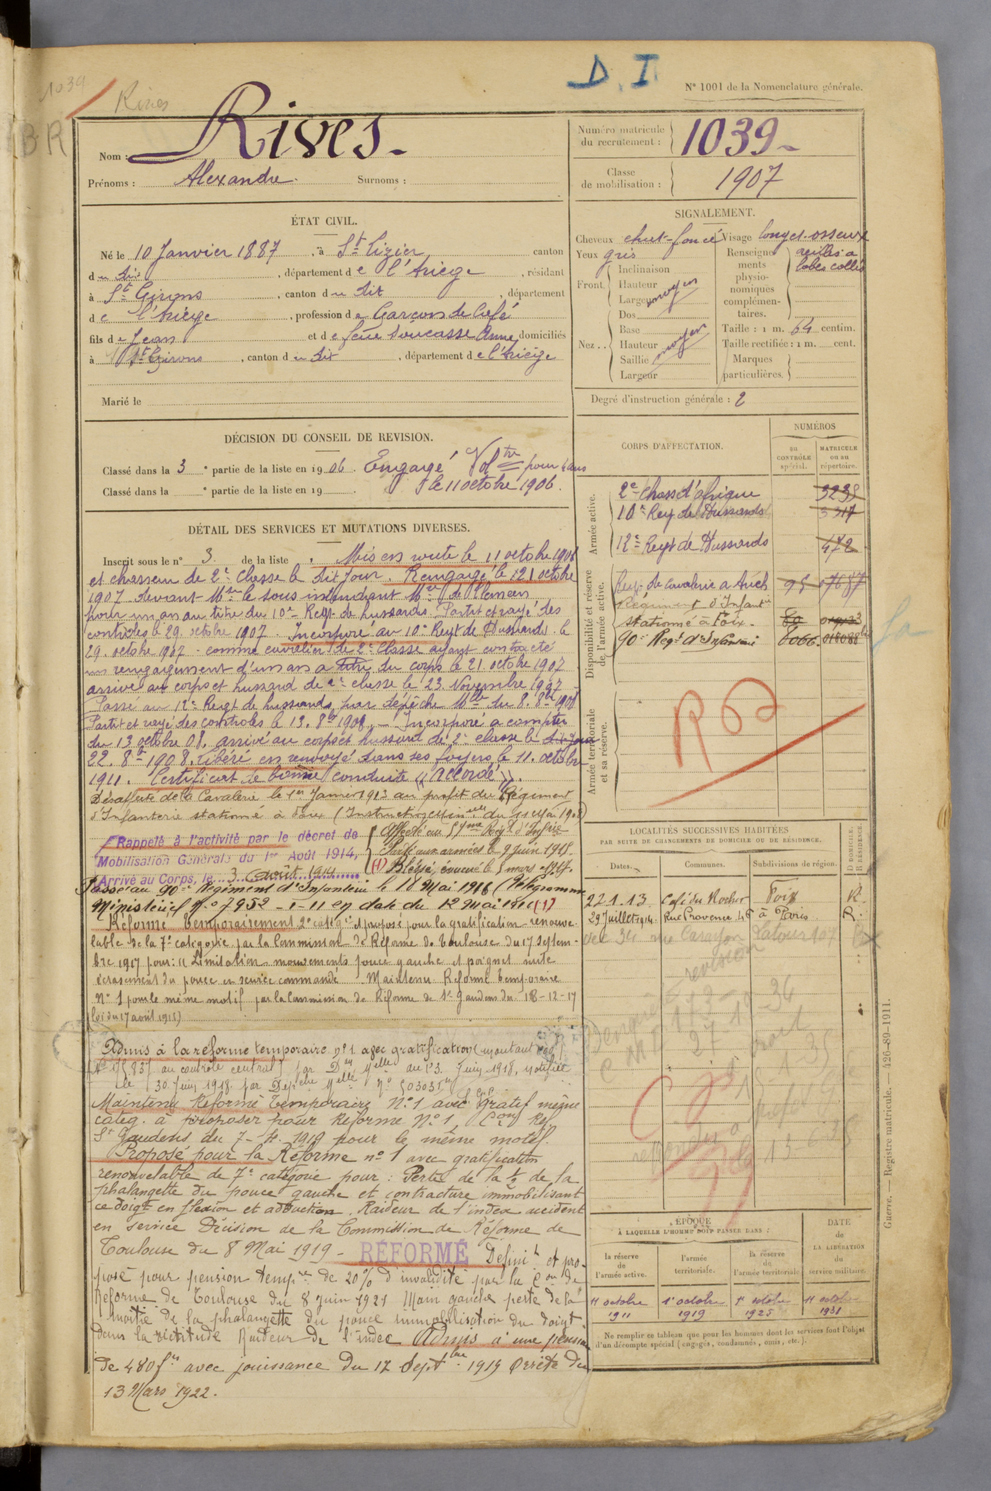 1039
Rives
D. I
N° 1001 de la Nomenclature générale.
BR
Nom : Rives
Prénoms : Alexandre. Surnoms :
Numéro matricule du recrutement : 1039
Classe de mobilisation : 1907
ÉTAT CIVIL.
Né le 10 Janvier 1887, à St Lizier canton
du dit, département de l'Ariège, résidant
à St Girons, canton du dit, département
de l'Ariège, profession de Garçon de Café
fils de Jean et de feue Soucasse Anne, domiciliés
à St Girons, canton du dit, département de l'Ariège
Marié le
SIGNALEMENT.
Cheveux chat-foncé Visage long et osseux
Yeux gris
Renseignements physionomiques complémentaires. oreilles à lobes collés
Front. Inclinaison
Hauteur moyen
Largeur
Nez. Dos
Base
Hauteur moyen
Saillie
Largeur
Taille : 1 m. 64 centim.
Taille rectifiée : 1 m. cent.
Marques particulières.
Degré d'instruction générale : 2
DÉCISION DU CONSEIL DE REVISION.
Classé dans la 3e partie de la liste en 1906. Engagé Voltre pour 3 ans
Classé dans la e partie de la liste en 19 . le 11 octobre 1906.
DÉTAIL DES SERVICES ET MUTATIONS DIVERSES.
Inscrit sous le n° 3 de la liste . Mis en route le 11 octobre 1906
et chasseur de 2e Classe le dit jour. Rengagé le 121 octobre
1907 devant Mr le sous intendant Mre de Tlemcen
pour un an au titre du 10e Regt de hussards. Parti et rayé des
contrôles le 29 octobre 1907. Incorporé au 10e Regt de Hussards le
29 octobre 1907 comme cavalier de 2e Classe ayant contracté
un rengagement d'un an à titre du corps le 21 octobre 1907
arrivé au corps et hussard de 2e classe le 23 Novembre 1907
Passé au 12e Regt de hussards par dépêche Mlle du 8.8bre 1908
Parti et rayé des contrôles le 13. 8bre 1908. Incorporé à compter
du 13 octobre 08. arrivé au corps et hussard de 2e classe le dit jour
22. 8bre 1908. Libéré et renvoyé dans ses foyers le 11 octobre
1911. Certificat de bonne conduite "Accordé".
Désaffecté de la Cavalerie le 1er Janvier 1913 au profit du Régiment
d'Infanterie stationné à Foix (Instruction minlle du 11 mai 1908)
Rappelé à l'activité par le décret de
Mobilisation Générale du 1er Août 1914.
Arrivé au Corps, le 3 août 1914
Affecté au 59me Régt d'Infrie
Parti aux armées le 9 juin 1915.
(1) Blessé, évacué le 5 mars 1917.
Passé au 90e Régiment d'Infanterie le 18 Mai 1916 (Télégramme
Ministériel n° 7952-1-11 en date du 12 Mai 1916 (1)
Réformé temporairement 2e catégie et proposé pour la gratification renouve-
lable de la 7e catégorie par la Commission de Réforme de Toulouse du 17 septem-
bre 1917 pour : "Limitation mouvements pouce gauche et poignet suite
écrasement du pouce en service commandé. Maintenu Réformé temporaire
N° 1 pour le même motif par la Commission de Réforme de St Gaudens du 18-12-17
Admis à la réforme temporaire n° 1 avec gratification
au contrôle central) par Don Mlle du 13 Juin 1918, notifiée
le 30 Juin 1918 par Dépêche Mlle n°
Maintenu Réformé Temporaire N° 1 avec gratif même
catég. à proposer pour Réforme N° 1 Con Ref
St Gaudens du 7-4-1919 pour le même motif
Proposé pour la Réforme n° 1 avec gratification
renouvelable de 7e catégorie pour : Perte de la 1/2 de la
phalangette du pouce gauche et contracture immobilisant
ce doigt en flexion et adduction. Raideur de l'index accident
en service Décision de la Commission de Réforme de
Toulouse du 8 Mai 1919 - RÉFORMÉ Définit et pro-
posé pour pension tempre de 20% d'invalidité par la Con de
Réforme de Toulouse du 8 juin 1921 Main gauche perte de la
moitié de la phalangette du pouce immobilisation du doigt
dans la rectitude Raideur de l'index Admis à une pension
de 480 frs avec jouissance du 17 Septbre 1919 Arrêté du
13 Mars 1922.
CORPS D'AFFECTATION.
NUMÉROS
AU CONTRÔLE spécial.
MATRICULE OU AU répertoire.
Armée active.
2e Chass d'Afrique 3235
10e Reg de Hussards
12e Regt de Hussards 472
Disponibilité et réserve de l'armée active.
Regt de Cavalerie à Auch
Régiment d'Infant
stationné à Foix.
90e Regt d'Infanterie
Armée territoriale et sa réserve.
LOCALITÉS SUCCESSIVES HABITÉES
PAR SUITE DE CHANGEMENTS DE DOMICILE OU DE RÉSIDENCE.
Dates. Communes. Subdivisions de région. D. DOMICILE. R. RÉSIDENCE.
22.1.13 Café du Rocher Foix R.
29 Juillet 1914 Rue Provence 46 à Paris R.
ÉPOQUE
À LAQUELLE L'HOMME DOIT PASSER DANS :
DATE DE LA LIBÉRATION du service militaire.
la réserve de l'armée active.
l'armée territoriale.
la réserve de l'armée territoriale.
11 octobre 1911
1er octobre 1919
1er octobre 1925
11 octobre 1931
Ne remplir ce tableau que pour les hommes dont les services font l'objet
d'un décompte spécial (engagés, condamnés, omis, etc.).
Guerre. — Registre matricule. — 426-89-1911.